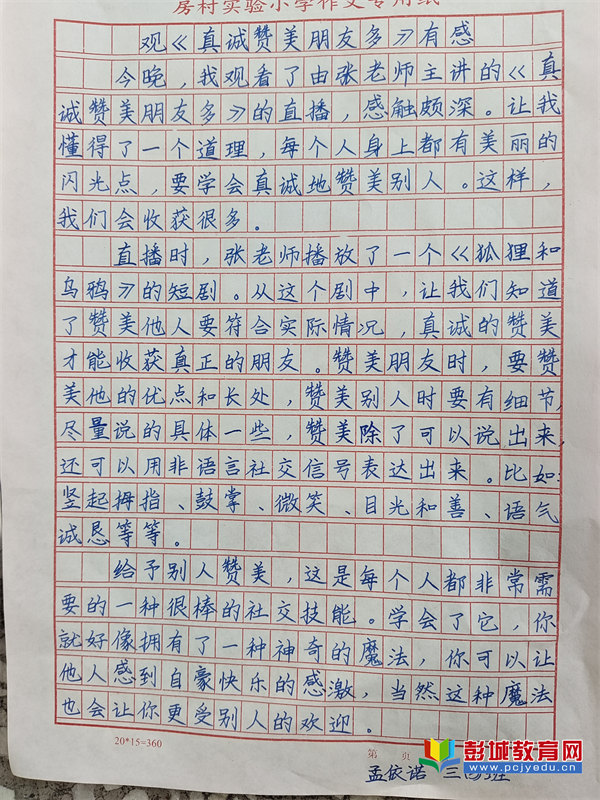 房村实验小学作文专用纸
观《真诚赞美朋友多》有感
今晚，我观看了由张老师主讲的《真
诚赞美朋友多》的直播，感触颇深。让我
懂得了一个道理，每个人身上都有美丽的
闪光点，要学会真诚地赞美别人。这样，
我们会收获很多。
直播时，张老师播放了一个《狐狸和
乌鸦》的短剧。从这个剧中，让我们知道
了赞美他人要符合实际情况，真诚的赞美
才能收获真正的朋友。赞美朋友时，要赞
美他的优点和长处，赞美别人时要有细节，
尽量说的具体一些，赞美除了可以说出来
还可以用非语言社交信号表达出来。比如：
竖起拇指、鼓掌、微笑、目光和善、语气
诚恳等等。
给予别人赞美，这是每个人都非常需
要的一种很棒的社交技能。学会了它，你
就好像拥有了一种神奇的魔法，你可以让
他人感到自豪快乐的感激，当然这种魔法
也会让你更受别人的欢迎。
20*15=360
第 页
孟依诺 三
彭城教育网
www.pcjyedu.com